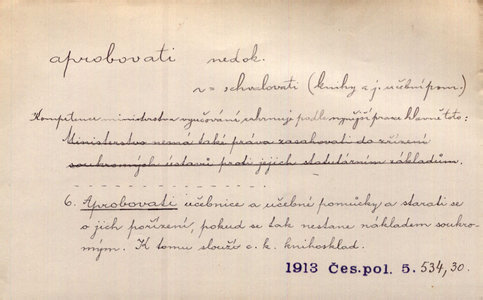 aprobovati nedok.
v = schvalovati (knihy a j. učební pom.)
Kompetence ministerstva vyučování zahrnuje podle nynější praxe hlavně toto:
Ministerstvo nemá také práva zasahovati do zřízení
soukromých ústavů proti jejich statutárním základům.
6. Aprobovati učebnice a učební pomůcky a starati se
o jich pořízení, pokud se tak nestane nákladem soukro-
mým. K tomu slouží c. k. knihosklad.
1913 Čes. pol. 5. 534, 30.